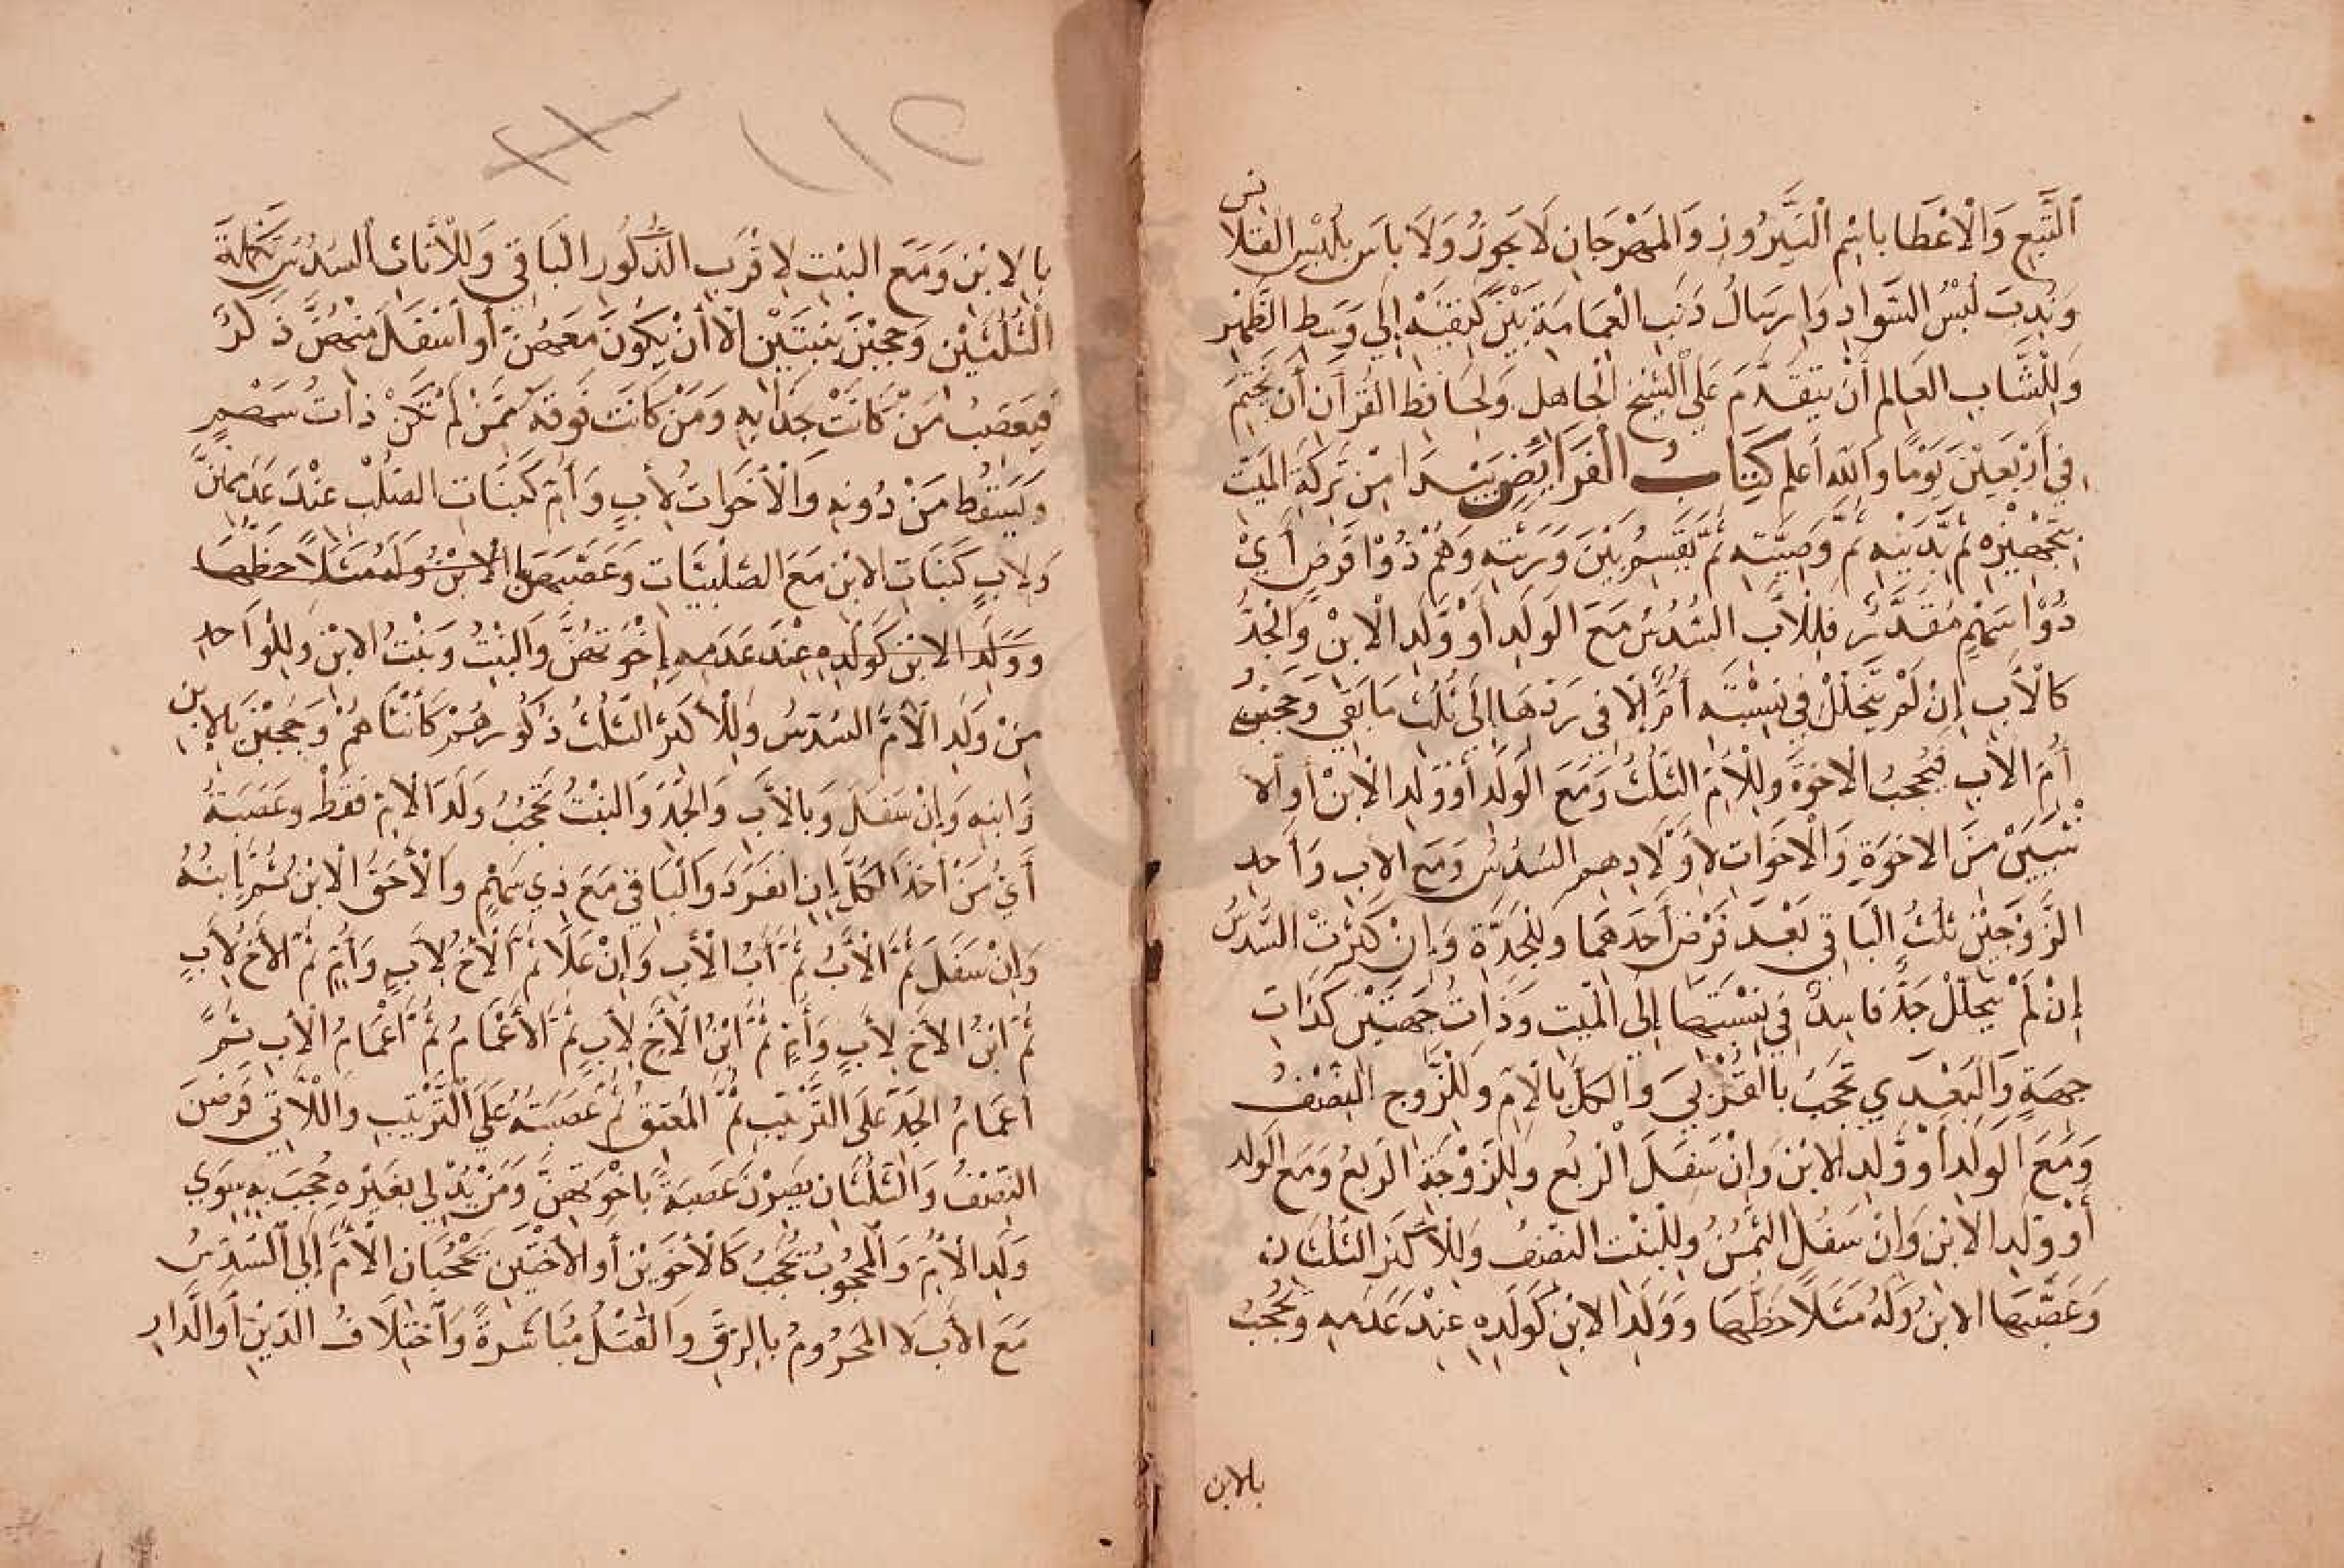 التبع والاعطا باسم النيروز والمهرجان لا يجوز ولا باس بلبس القلا
نس
وندب لبس السواد وارسال ذنب العمامة بين كتفيه الي وسط الظهر
وللشاب العالم أن يتقدم علي الشيخ الجاهل ولحافظ القرآن أن يختم
في أربعين يوما والله اعلم كتاب الفرايض يبدا من تركة الميت
بتجهيزه ثم بدينه ثم وصيته ثم يقسم بين ورثته وهم ذوا فرض أي
ذوا سهم مقدر فللاب السدس مع الولد أو ولد الابن والجد
كالأب إن لم يتخلل في نسبته أم إلا في ردها إلى ثلث ما بقي وحجب
أم الأب فيحجب الاخوة وللأم الثلث ومع الولد أو ولد الابن أو الا
ثنين من الاخوة والاخوات لا أولادهم السدس ومع الاب وأحد
الزوجين ثلث الباقي بعد فرض أحدهما وللجدة وإن كثرت السدس
إن لم يتخلل جد فاسد في نسبتها إلى الميت وذات جهتين كذات
جهة والبعدي تحجب بالقربي والكل بالام وللزوج النصف
ومع الولد أو ولد الابن وإن سفل الربع وللزوجة الربع ومع الولد
أو ولد الابن وان سفل الثمن وللبنت النصف وللأكثر الثلثان
وعصبها الابن وله مثلا حظها وولد الابن كولده عند عدمه ويحجب
بالابن
١١٥
بالابن ومع البنت لاقرب الذكور الباقي وللأناث السدس تكملة
الثلثين وحجبن ببنتين الا أن يكون معهن أو أسفل منهن ذكر
فيعصب من كانت بحذايه ومن كانت فوقه ممن لم تكن ذات سهم
ويسقط من دونه والأخوات لأب وأم كبنات الصلب عند عدمهن
ولاب كبنات الابن مع الصلبيات وعصبهن الابن وله مثلا حظها
وولد الابن كولده عند عدمه إخوتهن والبنت وبنت الابن وللواحد
من ولد الأم السدس وللأكثر الثلث ذكورهم كأنثاهم وحجبن بالابن
وابنه وإن سفل وبالأب والجد والبنت تحجب ولد الام فقط وعصبة
أي من أخذ الكل إن انفرد والباقي مع ذي سهم والأحق الابن ثم ابنه
وإن سفل ثم الأب ثم أب الأب وإن علا ثم الأخ لأب وأم ثم الأخ لأب
ثم ابن الأخ لأب وأم ثم ابن الأخ لأب ثم الأعمام ثم أعمام الأب ثم
أعمام الجد على الترتيب ثم المعتق ثم عصبته على الترتيب واللاتي فرضهن
النصف والثلثان يصرن عصبة باخوتهن ومن يدلي بغيره حجب به سوي
ولد الأم والمحجوب يحجب كالأخوين أو الأختين تحجبان الأم إلى السدس
مع الأب لا المحروم بالرق والقتل مباشرة واختلاف الدين أو الدار